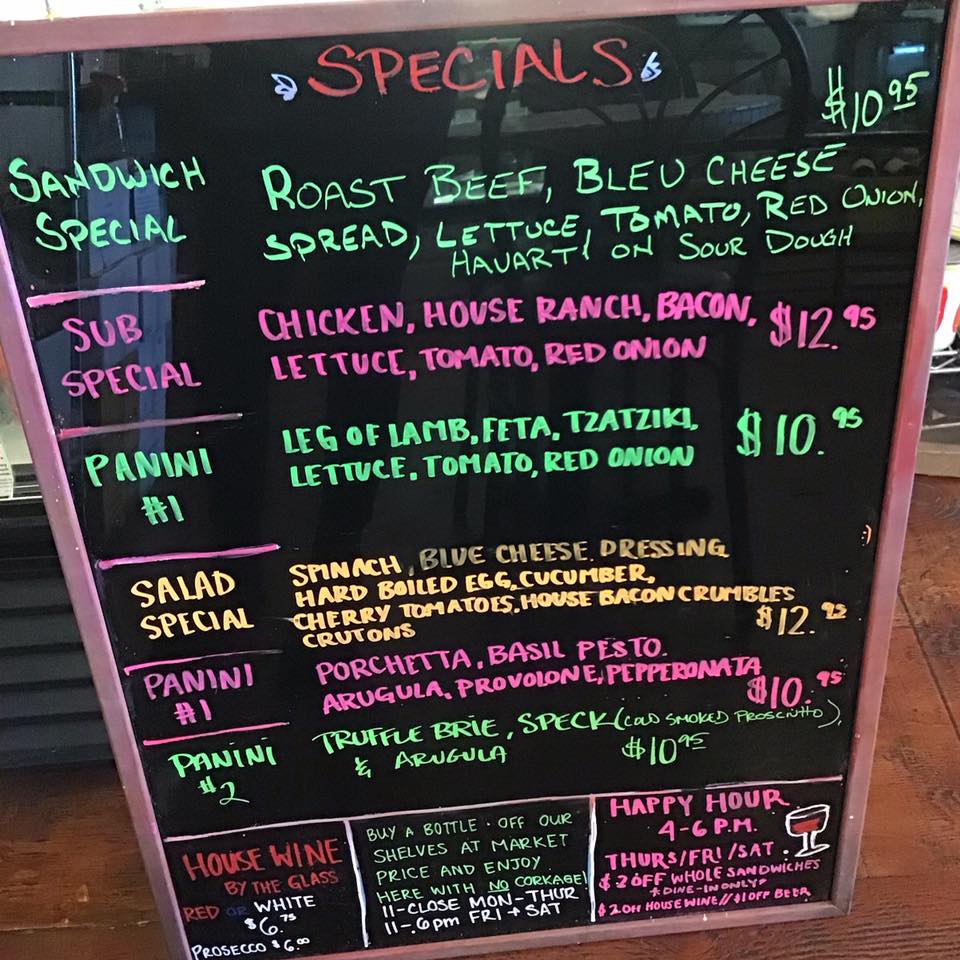 SPECIALS
$10.95
SANDWICH SPECIAL
ROAST BEEF, BLEU CHEESE
SPREAD, LETTUCE, TOMATO, RED ONION,
HAVARTI ON SOUR DOUGH
SUB SPECIAL
CHICKEN, HOUSE RANCH, BACON, $12.95
LETTUCE, TOMATO, RED ONION
PANINI #1
LEG OF LAMB, FETA, TZATZIKI, $10.95
LETTUCE, TOMATO, RED ONION
:)
SALAD SPECIAL
SPINACH, BLUE CHEESE. DRESSING
HARD BOILED EGG, CUCUMBER,
CHERRY TOMATOES, HOUSE BACON CRUMBLES
CRUTONS $12.95
PANINI #1
PORCHETTA, BASIL PESTO.
ARUGULA, PROVOLONE, PEPPERONATA
$10.95
PANINI #2
TRUFFLE BRIE, SPECK (COLD SMOKED PROSCIUTTO),
& ARUGULA $10.95
HOUSE WINE
BY THE GLASS
RED OR WHITE
$6.75
PROSECCO $6.00
BUY A BOTTLE · OFF OUR
SHELVES AT MARKET
PRICE AND ENJOY
HERE WITH NO CORKAGE!
11-CLOSE MON-THUR
11-.6pm FRI + SAT
HAPPY HOUR
4-6 P.M.
THURS/FRI/SAT
$2 OFF WHOLE SANDWICHES
*DINE-IN ONLY*
$2 OFF HOUSE WINE // $1 OFF BEER